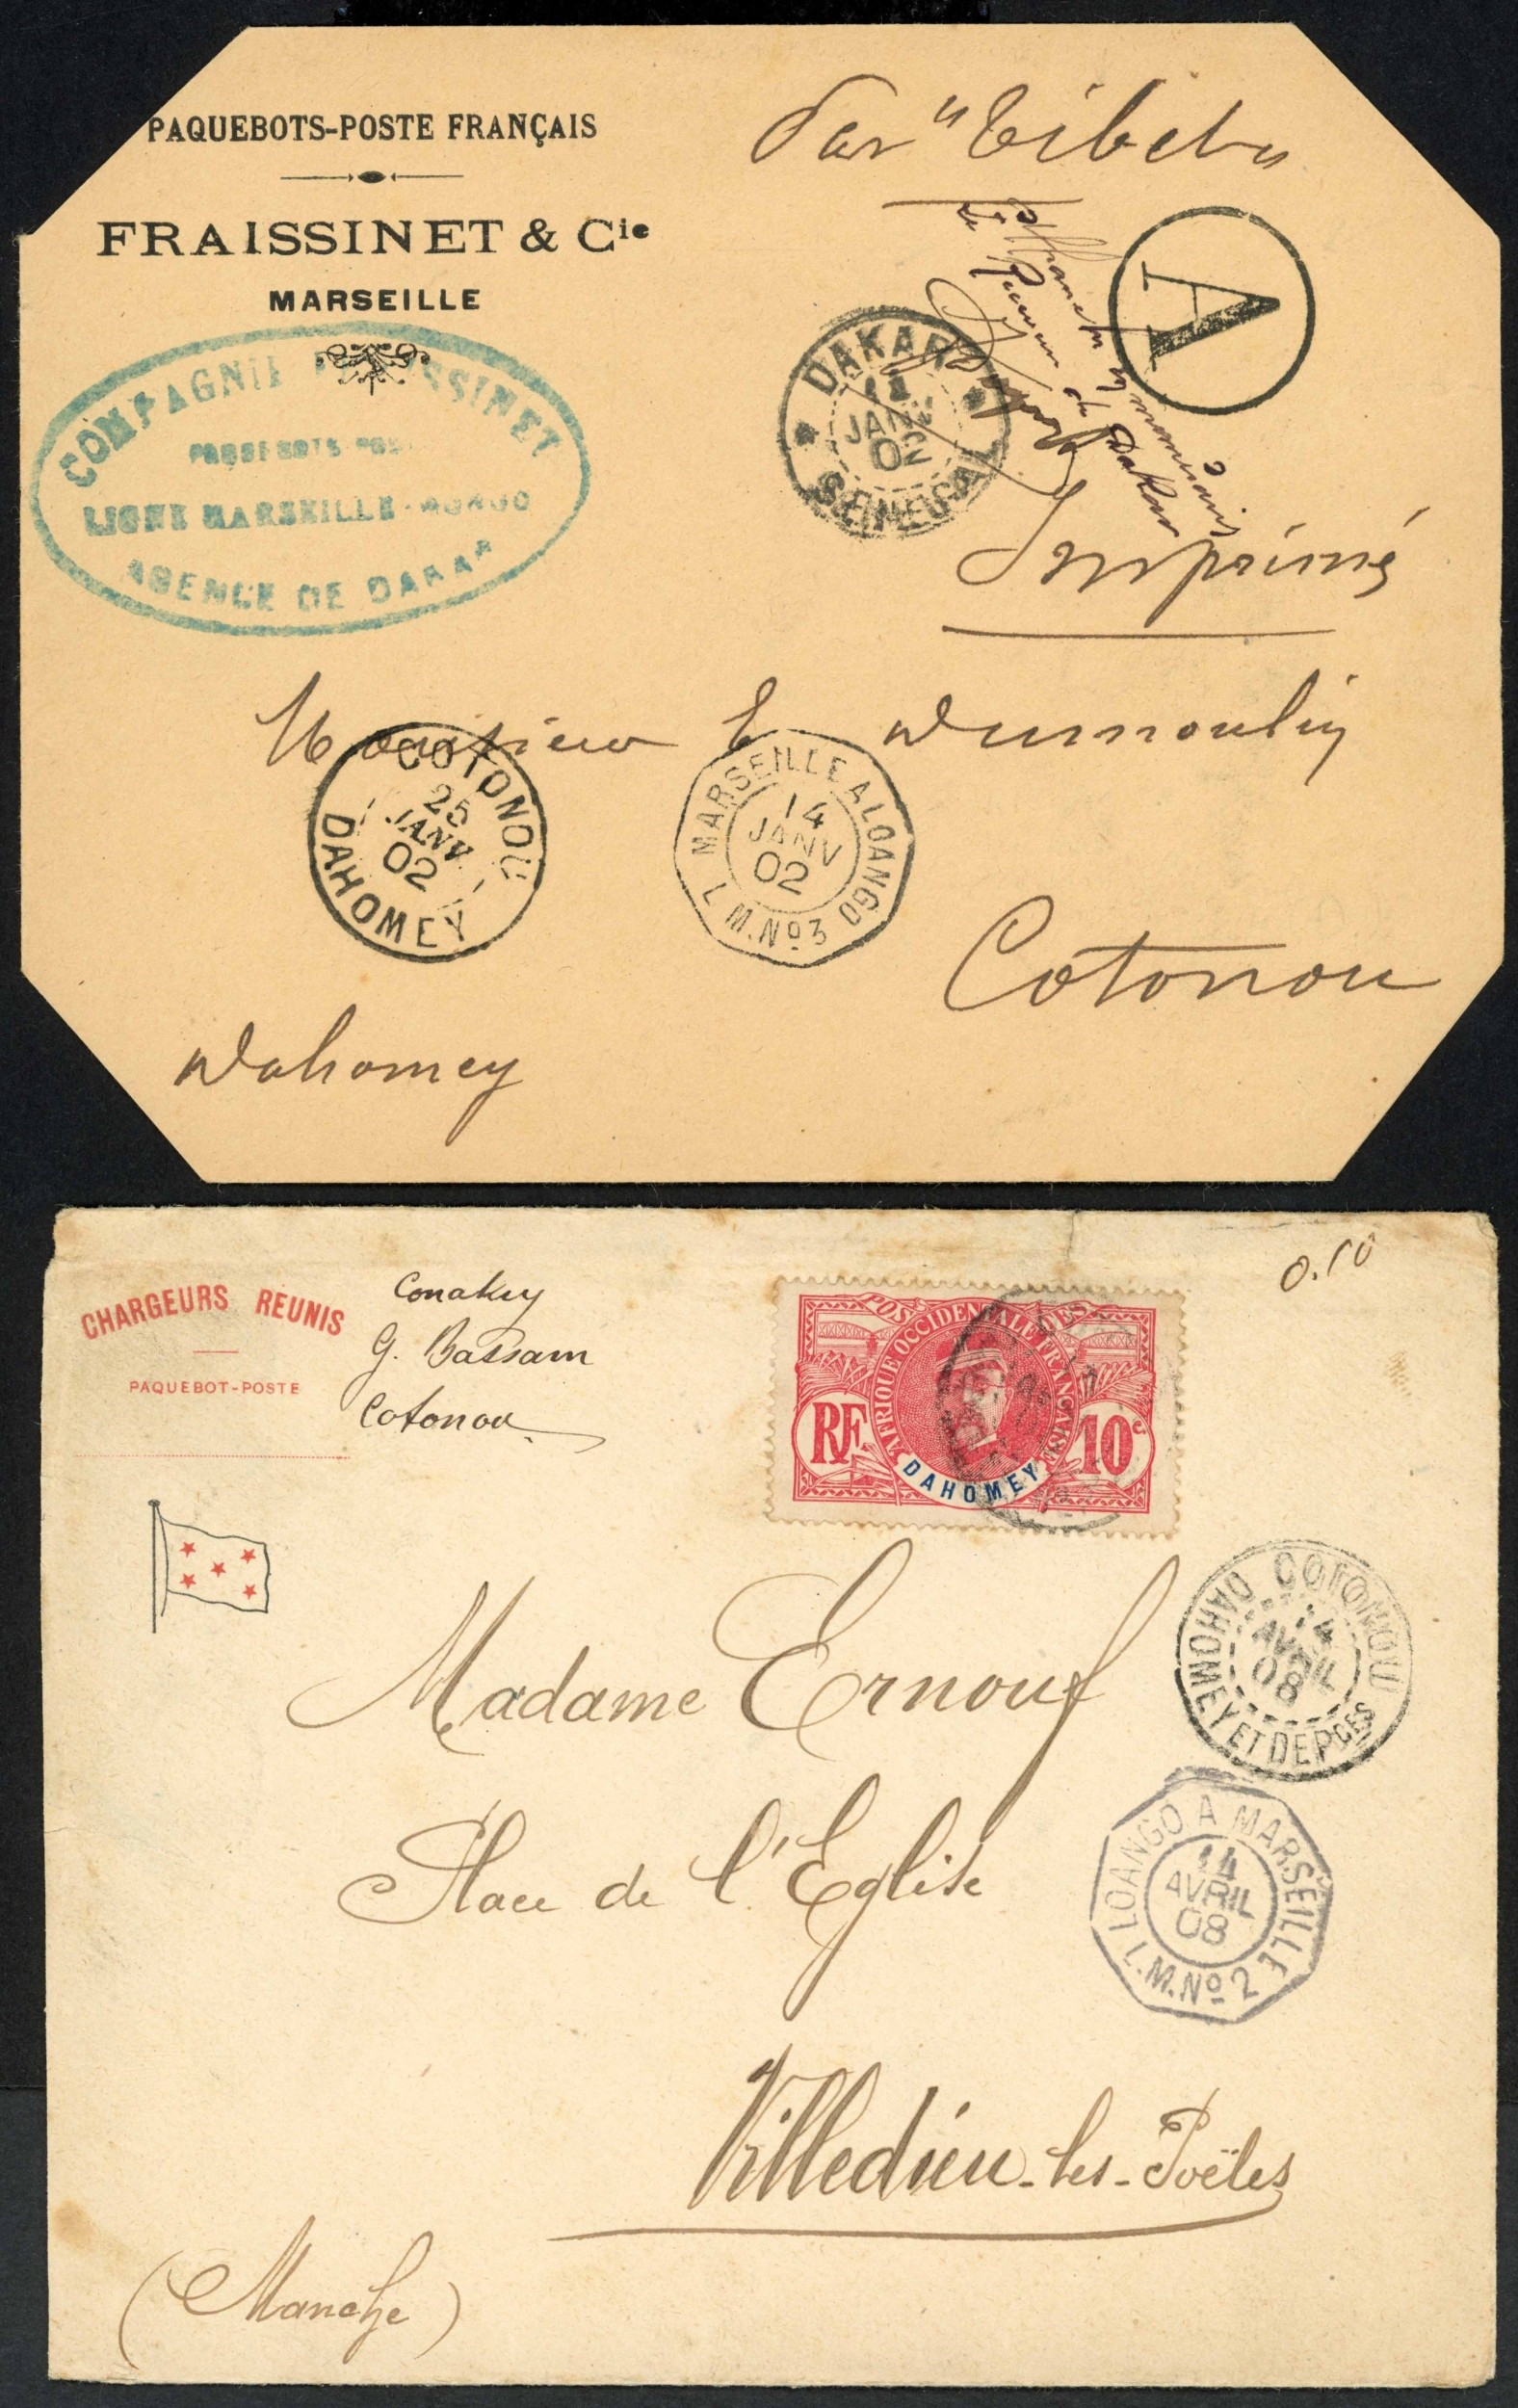 PAQUEBOTS-POSTE FRANÇAIS
FRAISSINET & Cie
MARSEILLE
Par "Tibet"
A
COMPAGNIE FRAISSINET
PAQUEBOTS-POSTE
LIGNE MARSEILLE-CONGO
AGENCE DE DAKAR
DAKAR
14
JANV
02
SENEGAL
Affranchi en numéraire
Le Receveur de Dakar
Imprimé
Monsieur E Dumoulin
COTONOU
25
JANV
02
DAHOMEY
MARSEILLE A LOANGO
14
JANV
02
L.M.No3
Cotonou
Dahomey
CHARGEURS REUNIS
PAQUEBOT-POSTE
Conakry
G. Bassam
Cotonou
0.10
POSTES
AFRIQUE OCCIDENTALE FRANÇAISE
RF
10c
DAHOMEY
COTONOU
14
AVRIL
08
DAHOMEY ET DEPCES
Madame Ernouf
Place de l'Eglise
LOANGO A MARSEILLE
14
AVRIL
08
L.M.No2
Villedieu-les-Poëles
(Manche)